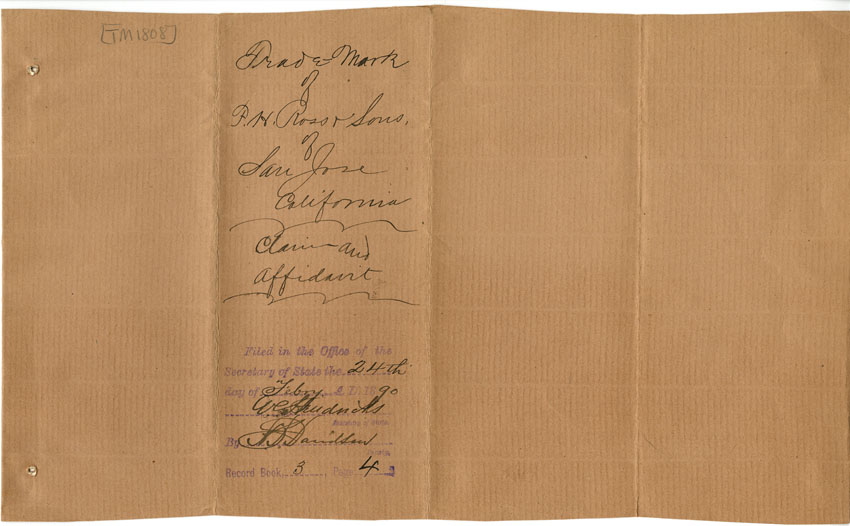 [TM1808]
Trade Mark
of
P. H. Ross & Sons.
of
San Jose
California
Claim and
Affidavit
Filed in the Office of the
Secretary of State the 24th
day of Feby A.D. 1890
W C Hendricks
Secretary of State
By Davidson
Deputy.
Record Book 3 Page 4